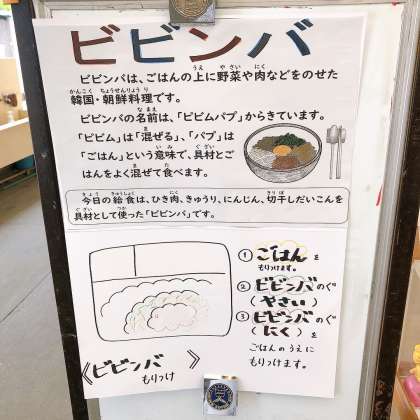 ビビンバ
ビビンバは、ごはんの上に野菜や肉などをのせた
韓国・朝鮮料理です。
ビビンバの名前は、「ビビムパプ」からきています。
「ビビム」は「混ぜる」、「パプ」は
「ごはん」という意味で、具材とご
はんをよく混ぜて食べます。
今日の給食は、ひき肉、きゅうり、にんじん、切干しだいこんを
具材として使った「ビビンバ」です。
① ごはんを
もりつけます。
② ビビンバのぐ
(やさい)
③ ビビンバのぐ
(にく)を
ごはんのうえに
もりつけます。
《ビビンバ》
もりつけ